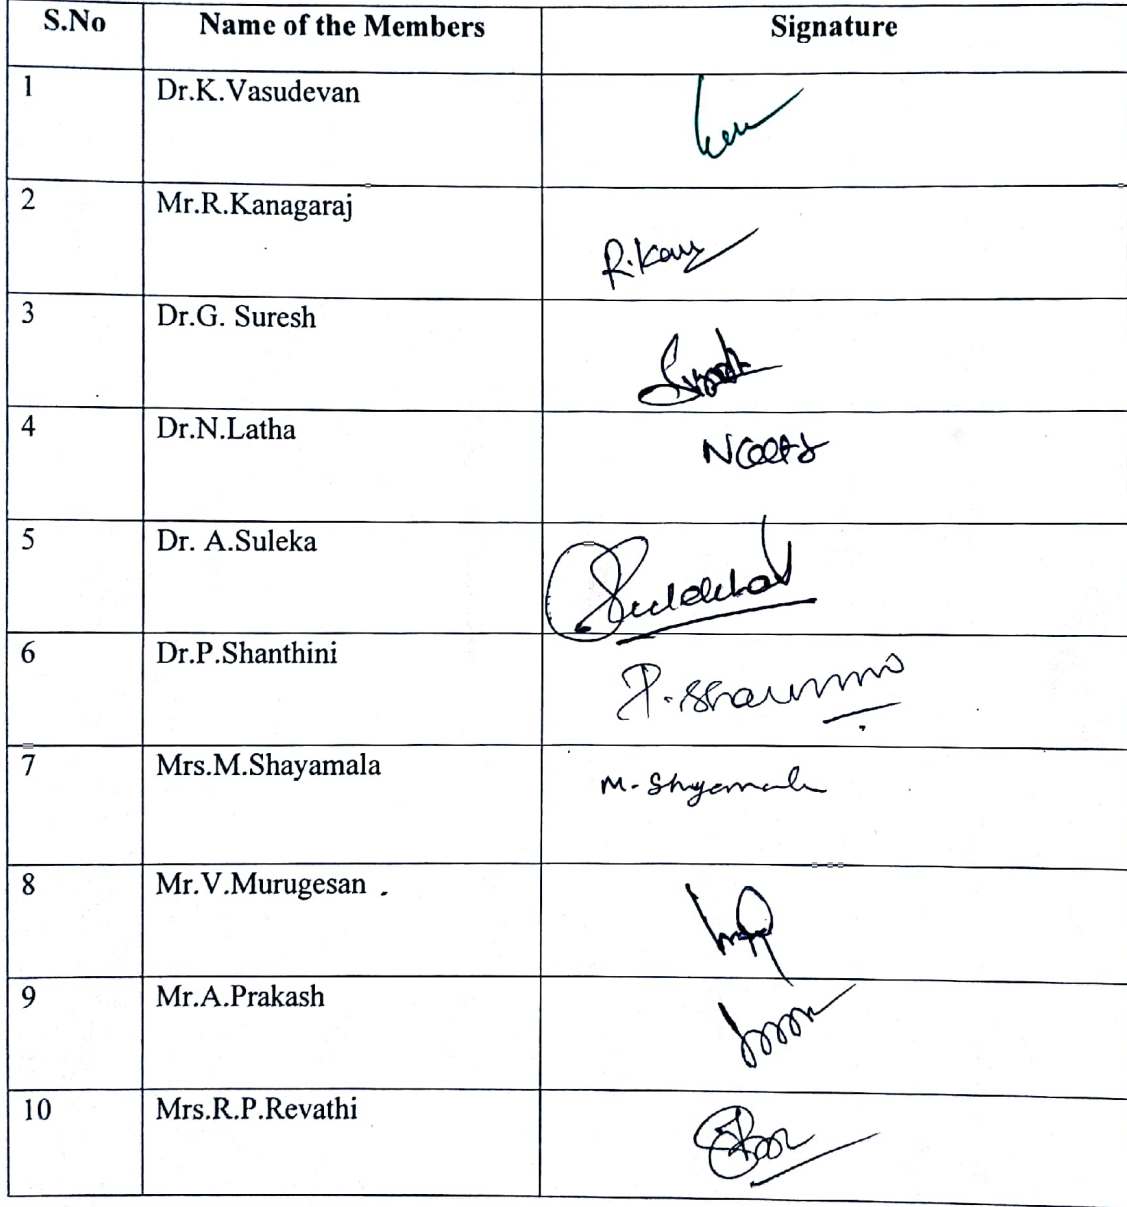 S.No Name of the Members Signature
1 Dr.K.Vasudevan
2 Mr.R.Kanagaraj
R.Kan
3 Dr.G. Suresh
4 Dr.N.Latha
5 Dr. A.Suleka
6 Dr.P.Shanthini
7 Mrs.M.Shayamala
M. Shyamala
8 Mr.V.Murugesan .
9 Mr.A.Prakash
10 Mrs.R.P.Revathi